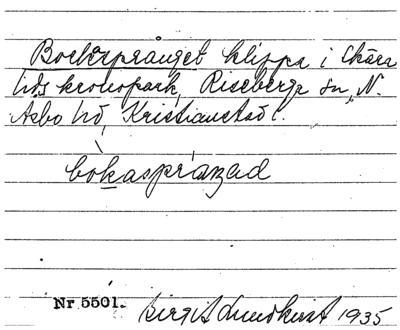 Bockerpranget klippa i Skäralids kronopark, Riseberga sn, N. Åsbo hd, Kristianstad l.
bòkaspráŋad
Nr 5501. Birgit Lundkvist 1935